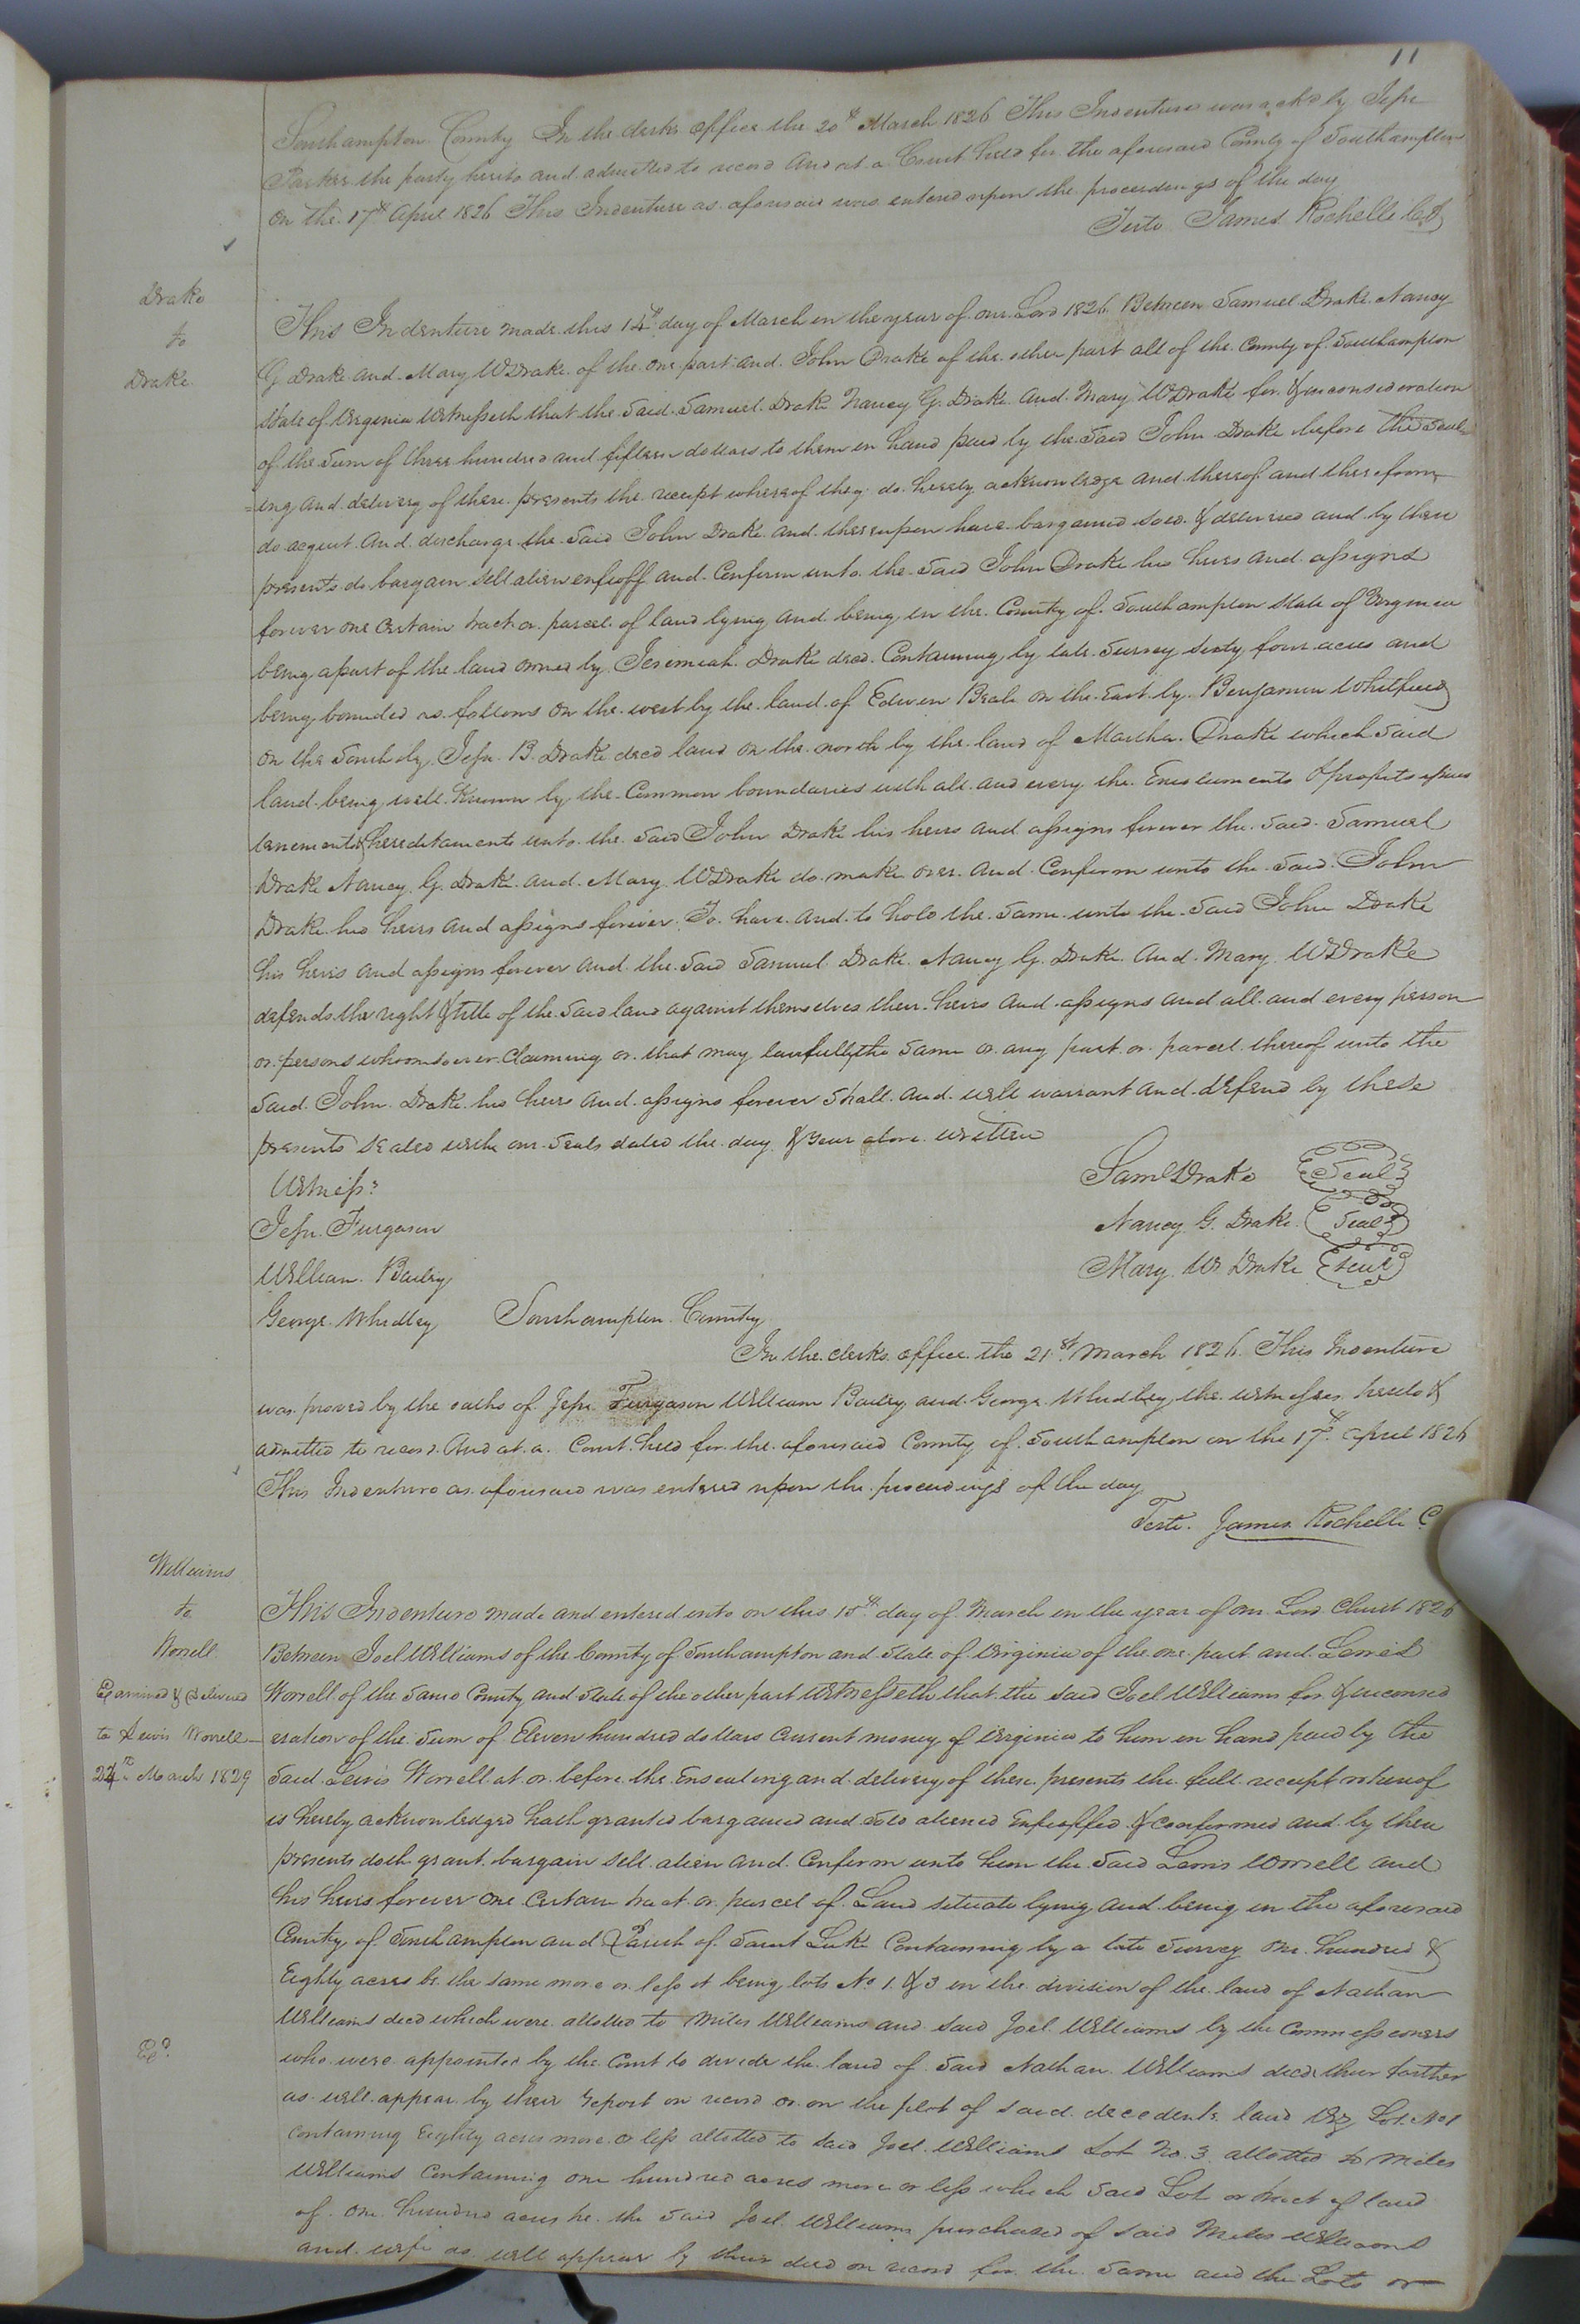 11
Southampton County In the clerks office the 20th March 1826 This Indenture was ackd by Jesse
Parker the party hereto and admitted to record And at a Court held for the aforesaid County of Southampton
on the 17th April 1826 This Indenture as aforesaid was entered upon the proceedings of the day
Teste James Rochelle
Drake
to
Drake
This Indenture made this 14th day of March in the year of our Lord 1826 Between Samuel Drake Nancy
G Drake and Mary W Drake of the one part and John Drake of the other part all of the County of Southampton
State of Virginia Witnesseth that the said Samuel Drake Nancy G. Drake And Mary W Drake for & in consideration
of the sum of three hundred and fifteen dollars to them in hand paid by the said John Drake before the seal
=ing and delivery of these presents the receipt whereof they do hereby acknowledge and thereof and therefrom
do acquit And discharge the said John Drake and thereupon have bargained sold & delivered and by these
presents do bargain sell alien enfeoff and Confirm unto the said John Drake his heirs and assigns
forever one certain tract or parcel of land lying and being in the County of Southampton State of Virginia
being a part of the land owned by Jeremiah Drake decd. Containing by late survey sixty four acres and
being bounded as follows on the west by the land of Edwin Beale on the East by Benjamin Whitfield
on the South by Jesse B. Drake decd land on the north by the land of Martha Drake which said
land being well known by the Common boundaries with all and every the Emoluments & profits issues
tenements hereditaments unto the said John Drake his heirs and assigns forever the said Samuel
Drake Nancy G. Drake and Mary W Drake do make over and Confirm unto the said John
Drake his heirs and assigns forever To have and to hold the same unto the said John Drake
his heirs and assigns forever and the said Samuel Drake Nancy G. Drake And Mary W Drake
defends the right & title of the said land against themselves their heirs and assigns and all and every person
or persons whomsoever Claiming or that may lawfully the same or any part or parcel thereof unto the
said John Drake his heirs and assigns forever shall and will warrant and defend by these
presents sealed with our seals dated the day & year above written
Witness:
Saml Drake Seal
Jesse Furgason
Nancy G. Drake Seal
William Bailey
Mary W Drake Seal
George Whedley Southampton County
In the clerks office the 21st March 1826 This Indenture
was proved by the oaths of Jesse Furgason William Bailey and George Whedley the witnesses hereto &
admitted to record And at a Court held for the aforesaid County of Southampton on the 17th April 1826
This Indenture as aforesaid was entered upon the proceedings of the day
Teste James Rochelle C
Williams
to
Worrell
Examined & Delivered
to Lewis Worrell
24th March 1829
This Indenture made and entered into on this 15th day of March in the year of our Lord Christ 1826
Between Joel Williams of the County of Southampton and State of Virginia of the one part and Lewis
Worrell of the same County and State of the other part Witnesseth that the said Joel Williams for & in consid
eration of the sum of Eleven hundred dollars current money of Virginia to him in hand paid by the
said Lewis Worrell at or before the Ensealing and delivery of these presents the full receipt whereof
is hereby acknowledged hath granted bargained and sold aliened Enfeoffed & confirmed and by these
presents doth grant bargain sell alien and Confirm unto him the said Lewis Worrell and
his heirs forever one Certain tract or parcel of Land situate lying and being in the aforesaid
County of Southampton and Parish of Saint Luke Containing by a late Survey One hundred &
Eighty acres be the same more or less it being lots No 1. & 3 in the division of the land of Nathan
Williams decd which were allotted to Miles Williams and said Joel Williams by the Commissioners
who were appointed by the Court to divide the land of said Nathan Williams decd their farther
as will appear by their report on record or on the plot of said decedents land Viz Lot No 1
Containing Eighty acres more or less allotted to said Joel Williams Lot No. 3 allotted to Miles
Williams Containing one hundred acres more or less which said Lot or tract of land
of one hundred acres he the said Joel Williams purchased of said Miles Williams
and wife as will appear by their deed on record for the same and the Lots or